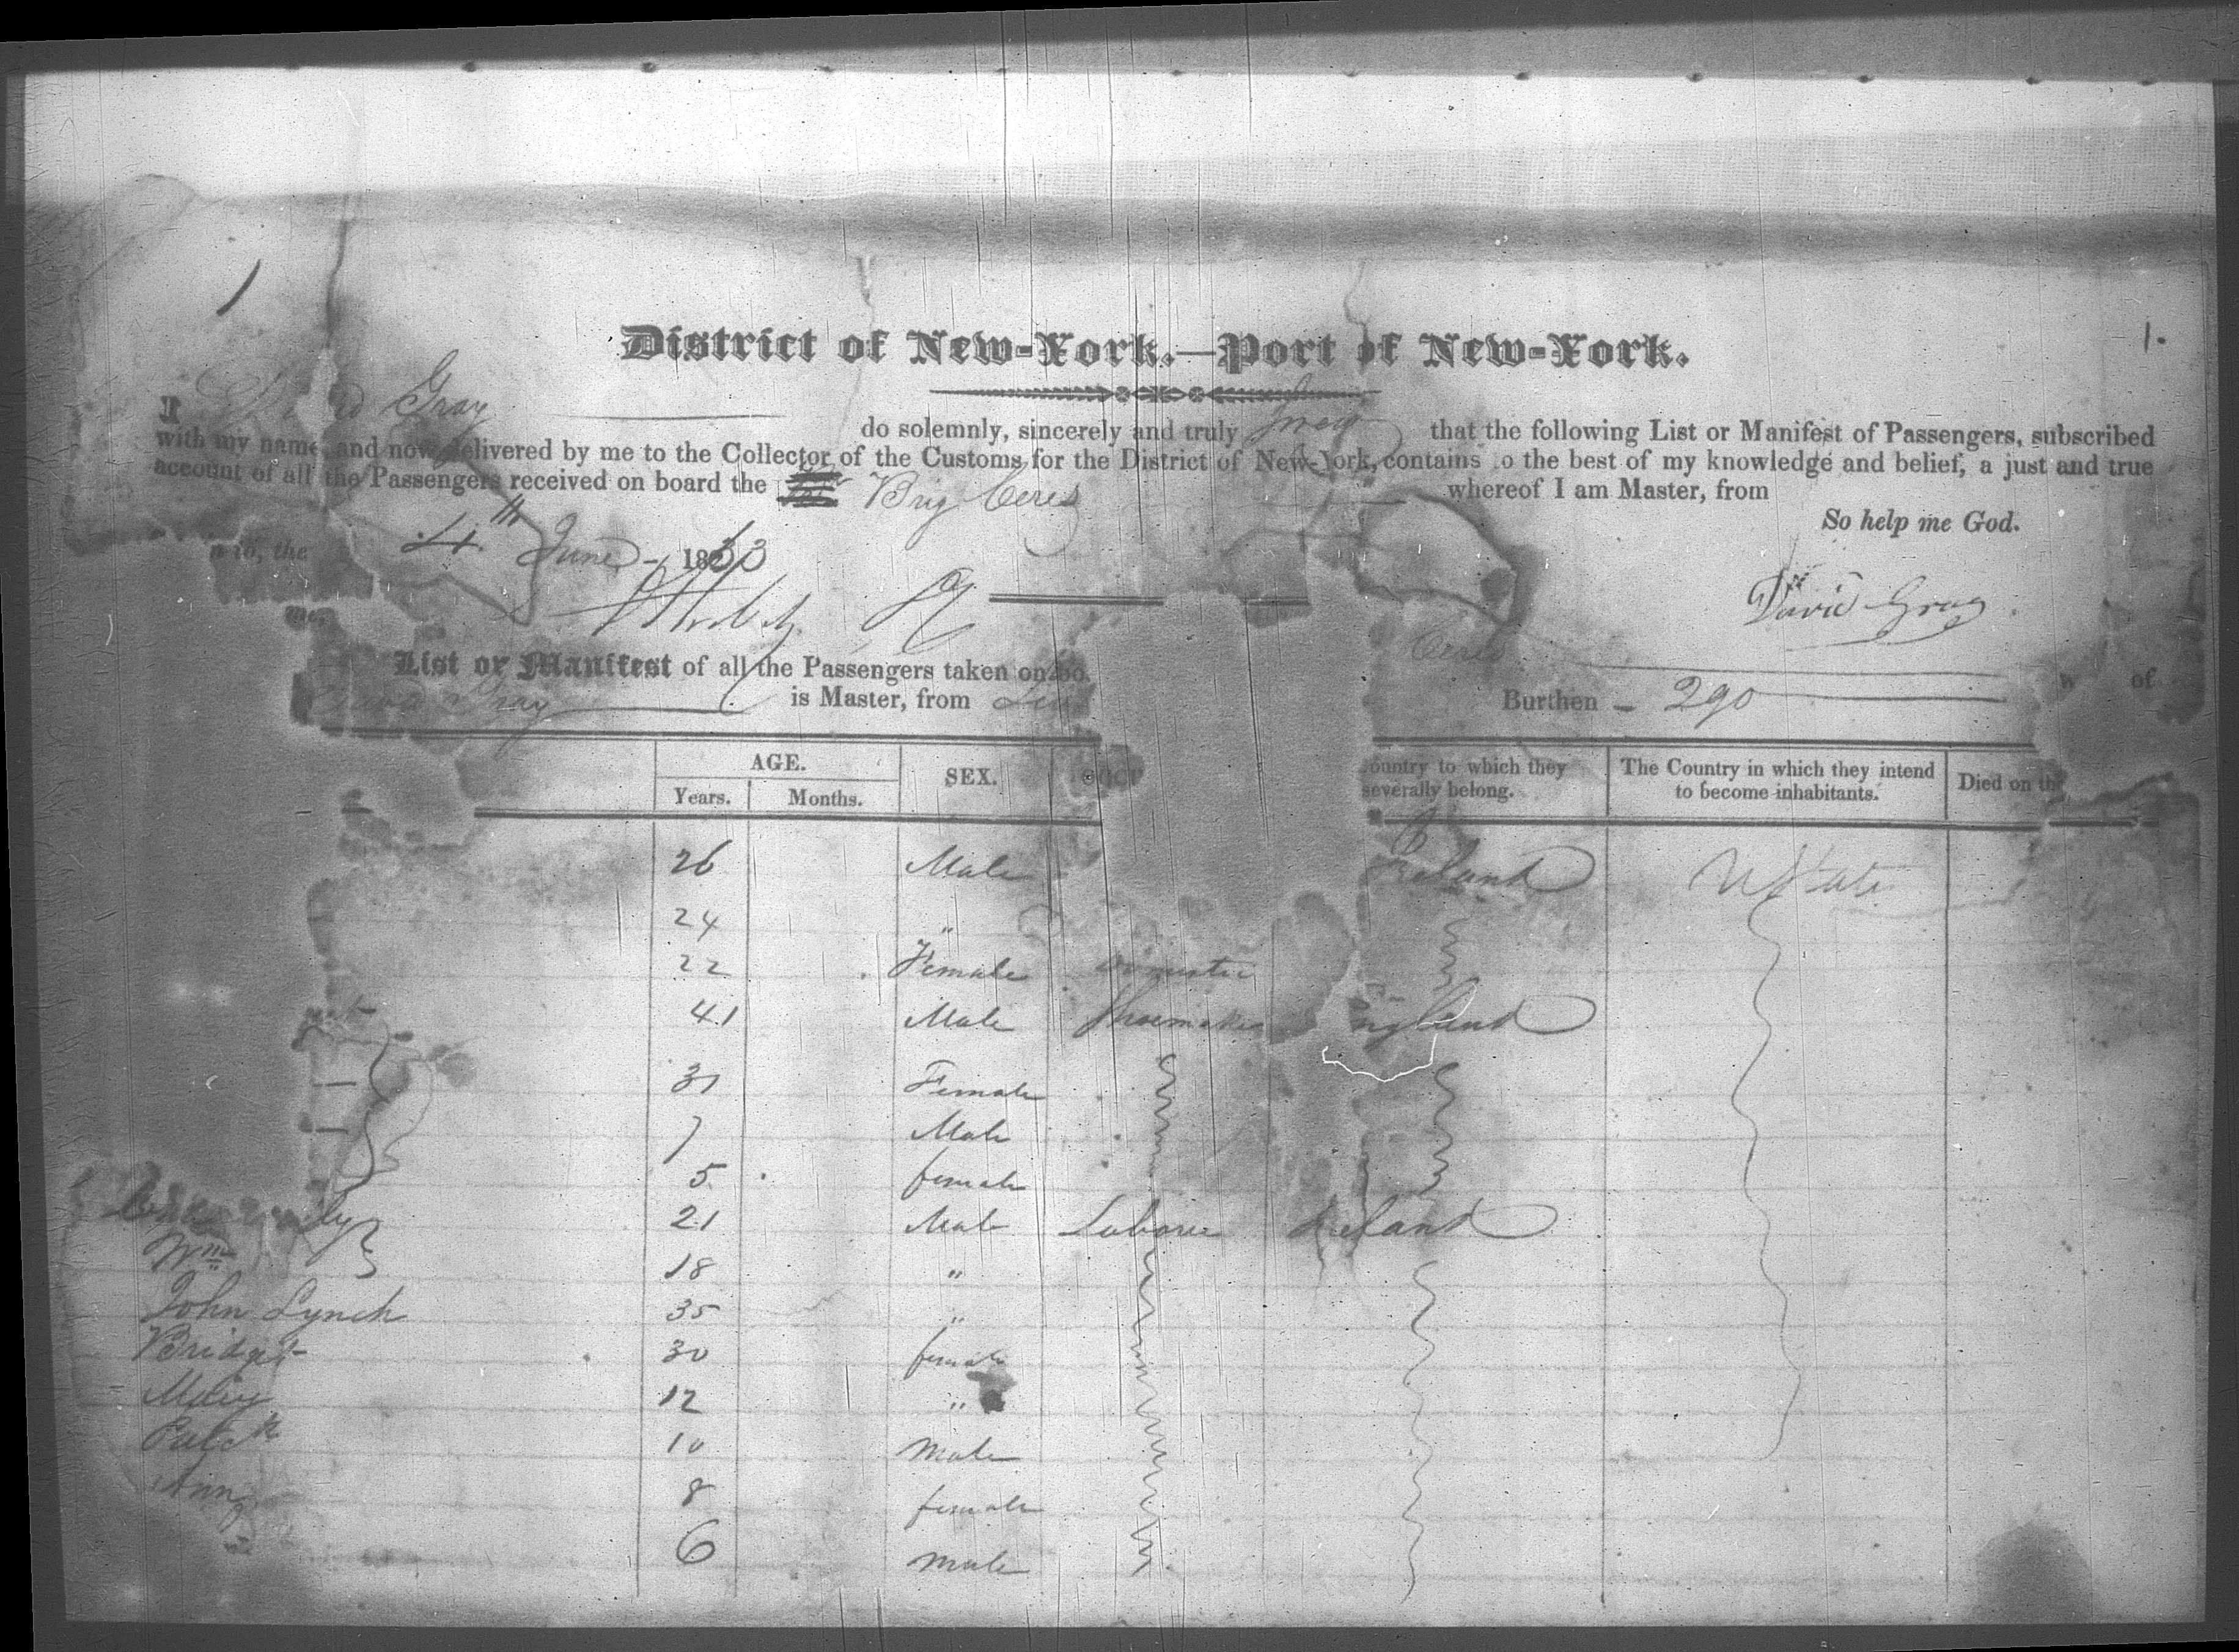 1 1.
District of New-York.—Port of New-York.
I David Gray do solemnly, sincerely and truly swear that the following List or Manifest of Passengers, subscribed
with my name, and now delivered by me to the Collector of the Customs for the District of New-York, contains to the best of my knowledge and belief, a just and true
account of all the Passengers received on board the Brig Ceres whereof I am Master, from
So help me God.
the 4th June - 1833
David Gray
List or Manifest of all the Passengers taken on bo Ceres
David Gray is Master, from Burthen - 290 of
AGE. SEX. OCCU Country to which they severally belong. The Country in which they intend to become inhabitants. Died on th
Years. Months.
26 Male Ireland U States
24 "
22 Female Domestic
41 Male Shoemaker England
31 Female
7 Male
5 female
21 Male Laborer Ireland
Wm 18 "
John Lynch 35 "
Bridget 30 female
Mary 12 "
Patck 10 male
Ann 8 female
6 male